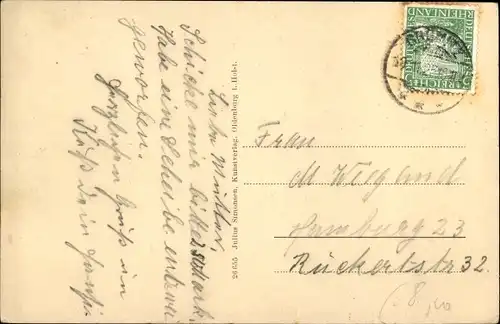 Liebe Mutter,
Schicke mir bitte 2 Mark.
Habe eine Scheibe entzwei
geworfen.
Herzlichen Gruß un
Kuß dein
26655 Julius Simonsen, Kunstverlag, Oldenburg i. Holst.
DEUTSCHES REICH
RHEINLAND
Frau
M Wiegand
Hamburg 23
Rückertstr 32.